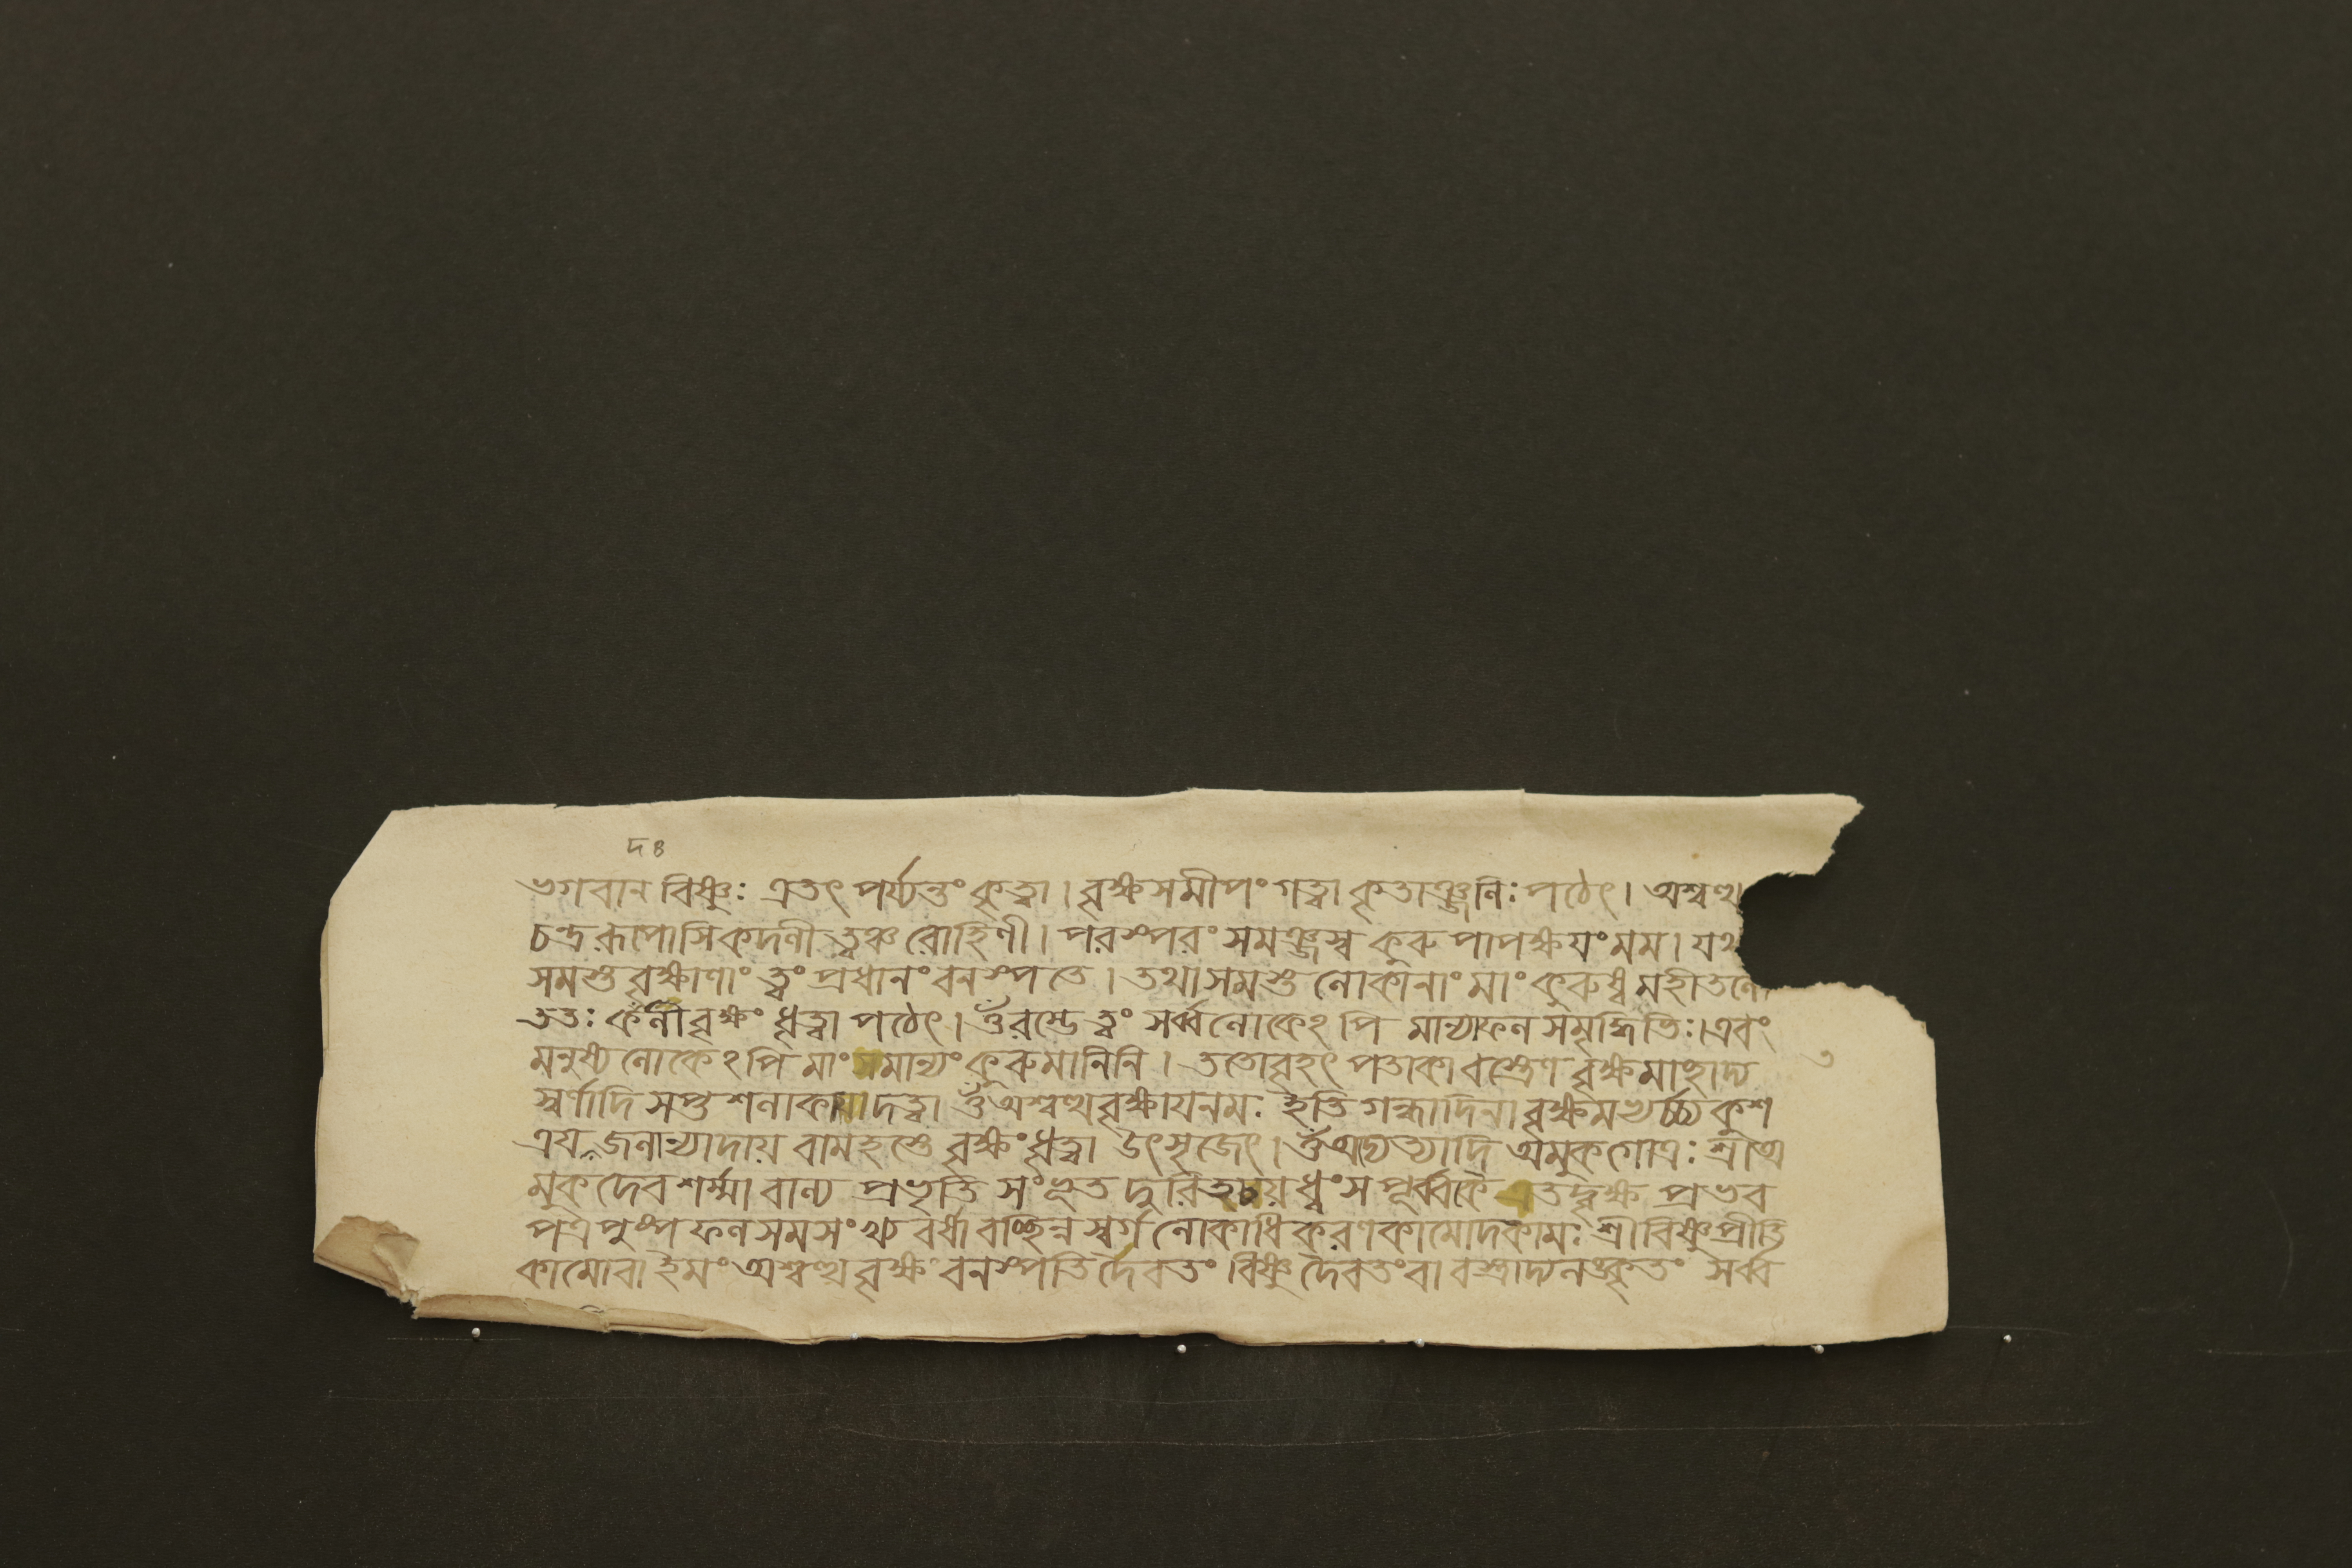 দঃ
ভগবান বিষ্ণুঃ এতৎ পর্য্যন্তং কৃত্বা। বৃক্ষসমীপং গত্বা কৃতাঞ্জলিঃ পঠেৎ। অশ্বত্থ
চন্দ্ররূপোসি কদলী ত্বঞ্চ রোহিণী। পরস্পরং সমঞ্জস্ব কুরু পাপক্ষয়ং মম। যথ
সমস্ত বৃক্ষাণাং ত্বং প্রধানং বনস্পতে। তথা সমস্ত লোকানাং মাং কুরুষ্ব মহীতলে
ততঃ কদলী বৃক্ষং ধৃত্বা পঠেৎ। ওঁ রম্ভে ত্বং সর্ব্বলোকেঽপি মান্যাফল সমৃদ্ধিতিঃ। এবং
মনুষ্য লোকেঽপি মাং সমান্যং কুরু মানিনি। ততো বৃহৎ পতাকা বস্ত্রেণ বৃক্ষমাচ্ছাদ্য
স্বর্ণাদি সপ্ত শলাকা দত্ত্বা ওঁ অশ্বত্থ বৃক্ষায় নমঃ ইতি গন্ধাদিনা বৃক্ষমভ্যর্চ্চ্য কুশ
ত্রয় জলান্যাদায় বামহস্তে বৃক্ষং ধৃত্বা উৎসৃজেৎ। ওঁ অদ্যেত্যাদি অমুকগোত্রঃ শ্রীঅ
মুক দেবশর্ম্মা বাল্য প্রভৃতি সংভূত দুরিতচয় ধ্বংস পূর্ব্বকৈ এতদ্বৃক্ষ প্রভব
পত্র পুষ্প ফল সমসংখ্য বর্ষাবচ্ছিন্ন স্বর্গ লোকাধিকরণকামোদকামঃ শ্রীবিষ্ণুপ্রীতি
কামো বা ইমং অশ্বত্থ বৃক্ষং বনস্পতি দৈবতং বিষ্ণু দৈবতং বা বস্ত্রাদ্যলঙ্কৃতং সর্ব্ব